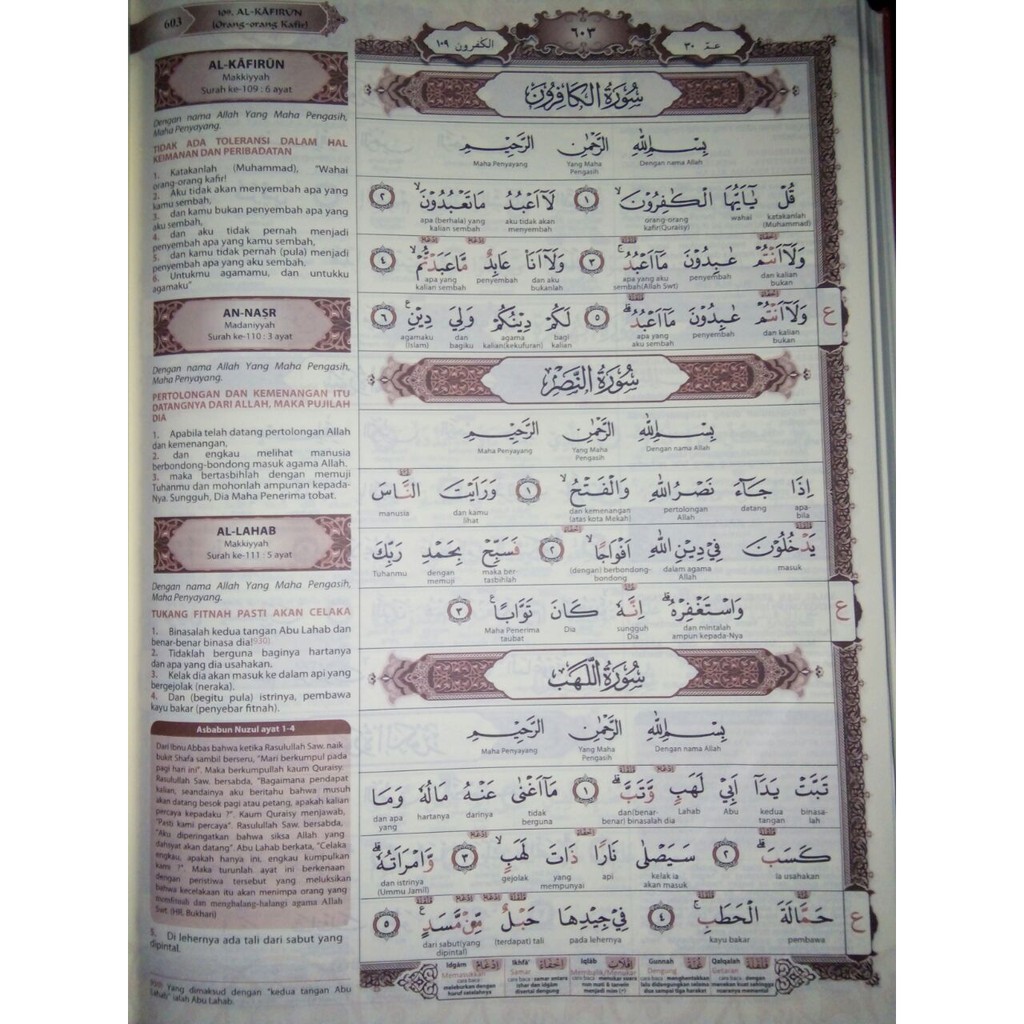 603
109. AL-KĀFIRŪN
(Orang-orang Kafir)
AL-KĀFIRŪN
Makkiyyah
Surah ke-109 : 6 ayat
Dengan nama Allah Yang Maha Pengasih,
Maha Penyayang.
TIDAK ADA TOLERANSI DALAM HAL
KEIMANAN DAN PERIBADATAN
1. Katakanlah (Muhammad), "Wahai
orang-orang kafir!
2. Aku tidak akan menyembah apa yang
kamu sembah,
3. dan kamu bukan penyembah apa yang
aku sembah,
4. dan aku tidak pernah menjadi
penyembah apa yang kamu sembah,
5. dan kamu tidak pernah (pula) menjadi
penyembah apa yang aku sembah.
6. Untukmu agamamu, dan untukku
agamaku"
AN-NAṢR
Madaniyyah
Surah ke-110 : 3 ayat
Dengan nama Allah Yang Maha Pengasih,
Maha Penyayang.
PERTOLONGAN DAN KEMENANGAN ITU
DATANGNYA DARI ALLAH, MAKA PUJILAH
DIA
1. Apabila telah datang pertolongan Allah
dan kemenangan,
2. dan engkau melihat manusia
berbondong-bondong masuk agama Allah.
3. maka bertasbihlah dengan memuji
Tuhanmu dan mohonlah ampunan kepada-
Nya. Sungguh, Dia Maha Penerima tobat.
AL-LAHAB
Makkiyyah
Surah ke-111 : 5 ayat
Dengan nama Allah Yang Maha Pengasih,
Maha Penyayang.
TUKANG FITNAH PASTI AKAN CELAKA
1. Binasalah kedua tangan Abu Lahab dan
benar-benar binasa dia![930]
2. Tidaklah berguna baginya hartanya
dan apa yang dia usahakan.
3. Kelak dia akan masuk ke dalam api yang
bergejolak (neraka).
4. Dan (begitu pula) istrinya, pembawa
kayu bakar (penyebar fitnah).
Asbabun Nuzul ayat 1-4
Dari Ibnu Abbas bahwa ketika Rasulullah Saw. naik
bukit Shafa sambil berseru, "Mari berkumpul pada
pagi hari ini". Maka berkumpullah kaum Quraisy.
Rasulullah Saw. bersabda, "Bagaimana pendapat
kalian, seandainya aku beritahu bahwa musuh
akan datang besok pagi atau petang, apakah kalian
percaya kepadaku ?". Kaum Quraisy menjawab,
"Pasti kami percaya". Rasulullah Saw. bersabda,
"Aku diperingatkan bahwa siksa Allah yang
dahsyat akan datang". Abu Lahab berkata, "Celaka
engkau, apakah hanya ini, engkau kumpulkan
kami !". Maka turunlah ayat ini berkenaan
dengan peristiwa tersebut yang melukiskan
bahwa kecelakaan itu akan menimpa orang yang
memfitnah dan menghalang-halangi agama Allah
Swt. (HR. Bukhari)
5. Di lehernya ada tali dari sabut yang
dipintal.
Yang dimaksud dengan "kedua tangan Abu
Lahab" ialah Abu Lahab.
عم ٣٠
٦٠٣
الكفرون ١٠٩
سُورَةُ الْكَافِرُونَ
بِسْمِ اللّٰهِ الرَّحْمٰنِ الرَّحِيْمِ
Dengan nama Allah Yang Maha Pengasih Maha Penyayang
قُلْ يٰٓاَيُّهَا الْكٰفِرُوْنَۙ ١ لَآ اَعْبُدُ مَا تَعْبُدُوْنَۙ ٢
katakanlah (Muhammad) wahai orang-orang kafir(Quraisy) aku tidak akan menyembah apa (berhala) yang kalian sembah
وَلَآ اَنْتُمْ عٰبِدُوْنَ مَآ اَعْبُدُۚ ٣ وَلَآ اَنَا۠ عَابِدٌ مَّا عَبَدْتُّمْۙ ٤
dan kalian bukan penyembah apa yang aku sembah(Allah Swt) dan aku bukanlah penyembah apa yang kalian sembah
وَلَآ اَنْتُمْ عٰبِدُوْنَ مَآ اَعْبُدُۗ ٥ لَكُمْ دِيْنُكُمْ وَلِيَ دِيْنِ ٦
dan kalian bukan penyembah apa yang aku sembah bagi kalian agama kalian(kekufuran) dan bagiku agamaku (Islam)
ع
سُورَةُ النَّصْرِ
بِسْمِ اللّٰهِ الرَّحْمٰنِ الرَّحِيْمِ
Dengan nama Allah Yang Maha Pengasih Maha Penyayang
اِذَا جَاۤءَ نَصْرُ اللّٰهِ وَالْفَتْحُۙ ١ وَرَاَيْتَ النَّاسَ
apa-bila datang pertolongan Allah dan kemenangan (atas kota Mekah) dan kamu lihat manusia
يَدْخُلُوْنَ فِيْ دِيْنِ اللّٰهِ اَفْوَاجًاۙ ٢ فَسَبِّحْ بِحَمْدِ رَبِّكَ
masuk dalam agama Allah (dengan) berbondong-bondong maka ber-tasbihlah dengan memuji Tuhanmu
وَاسْتَغْفِرْهُۗ اِنَّهٗ كَانَ تَوَّابًا ٣
dan mintalah ampun kepada-Nya sungguh Dia Dia Maha Penerima taubat
ع
سُورَةُ اللَّهَبِ
بِسْمِ اللّٰهِ الرَّحْمٰنِ الرَّحِيْمِ
Dengan nama Allah Yang Maha Pengasih Maha Penyayang
تَبَّتْ يَدَآ اَبِيْ لَهَبٍ وَّتَبَّۗ ١ مَآ اَغْنٰى عَنْهُ مَالُهٗ وَمَا
binasa-lah kedua tangan Abu Lahab dan(benar-benar) binasalah dia tidak berguna darinya hartanya dan apa yang
كَسَبَۗ ٢ سَيَصْلٰى نَارًا ذَاتَ لَهَبٍۙ ٣ وَّامْرَاَتُهٗۗ
Ia usahakan kelak ia akan masuk api yang mempunyai gejolak dan istrinya (Ummu Jamil)
حَمَّالَةَ الْحَطَبِۚ ٤ فِيْ جِيْدِهَا حَبْلٌ مِّنْ مَّسَدٍ ٥
pembawa kayu bakar pada lehernya (terdapat) tali dari sabut(yang dipintal)
ع
Idgām Ikhfā' Iqlāb Gunnah Qalqalah
Memasukkan Samar Membalik/Menukar Dengung Getaran